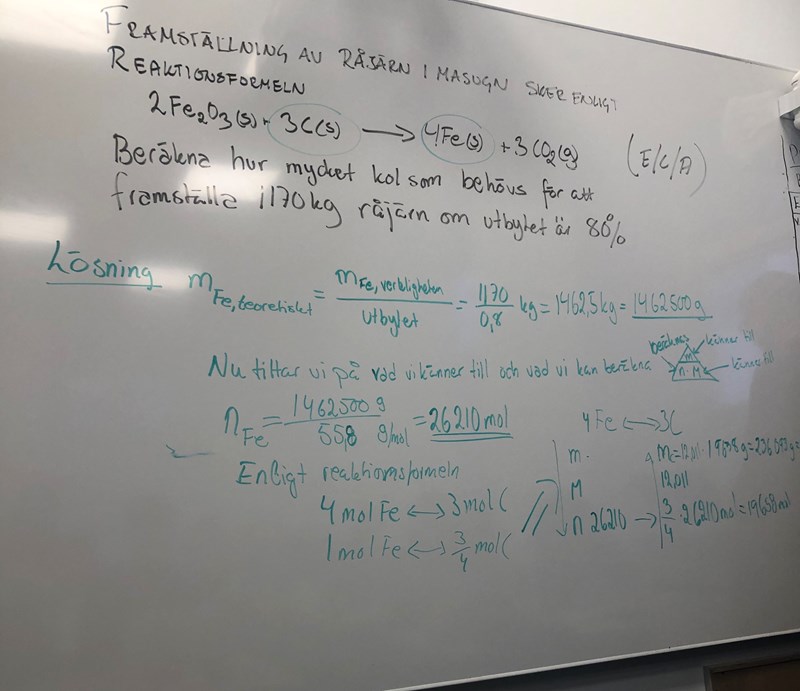 FRAMSTÄLLNING AV RÅJÄRN I MASUGN SKER ENLIGT
REAKTIONSFORMELN
2Fe₂O₃(s) + 3C(s) → 4Fe(s) + 3CO₂(g) (E/C/A)
Beräkna hur mycket kol som behövs för att
framställa 1170 kg råjärn om utbytet är 80%
Lösning m Fe, teoretiskt = m Fe, verkligheten / utbytet = 1170 / 0,8 kg = 1462,5 kg = 1462500 g
Nu tittar vi på vad vi känner till och vad vi kan beräkna
beräknas känner till
m
n · M känner till
n Fe = 1462500 g / 55,8 g/mol = 26210 mol
Enligt reaktionsformeln
4 mol Fe ↔ 3 mol C
1 mol Fe ↔ 3/4 mol C
4 Fe ↔ 3C
m. m = 12,011 ·
M 12,011
n 26210 → 3/4 · 26210 mol = 19658 mol